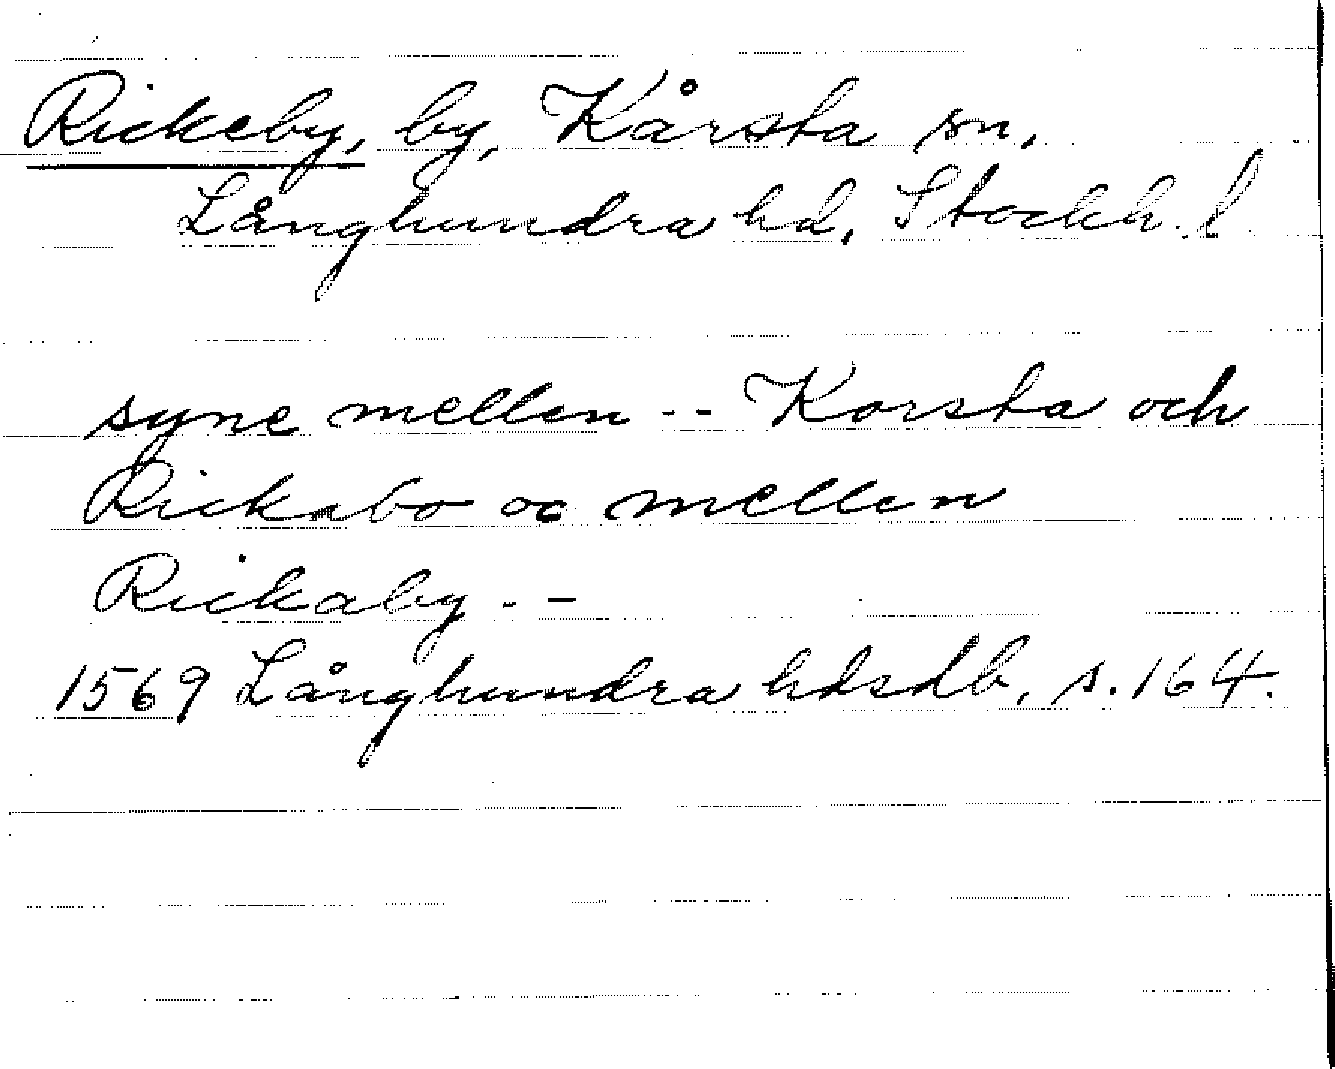 Rickeby, by, Kårsta sn.
Långhundra hd, Stockh. l.
syne mellen -- Korsta och
Rickabo oc mellen
Rickaby --
1569 Långhundra hdsdb, s. 164.